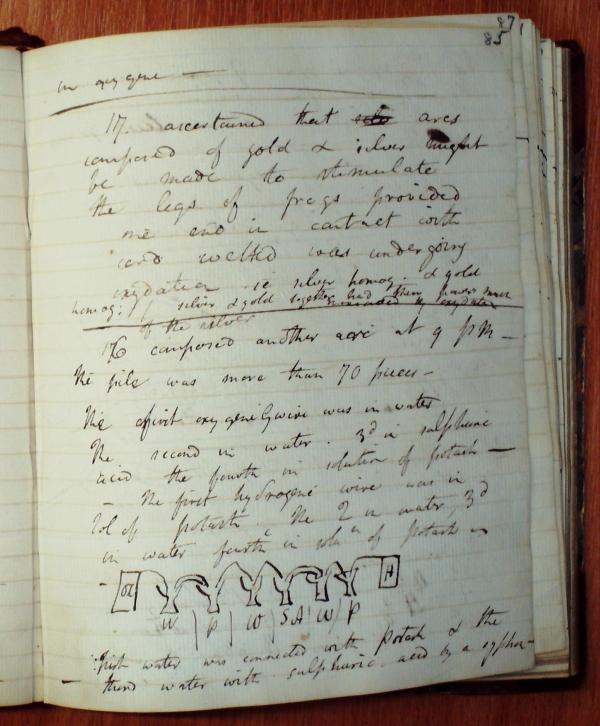 87
85
in oxygene —
17 ascertained that arcs
composed of gold & silver might
be made to stimulate
the legs of frogs provided
one end in contact with
and wetted was undergoing
oxydation ie silver homog: & gold
homog: silver & gold together had their powers much
increased by oxydation
of the silver
composed another at 9 PM —
The pile was more than 70 pieces —
The first oxygene wire was in water
The second in water. 3d in sulphuric
acid the fourth in solution of potash —
— The first hydrogene wire was in
sol of potash. The 2 in water, 3d
in water fourth in solun of potash
OX H
W | P | W | SA | W | P
First water was connected with potash & the
third water with sulphuric acid by a syphon —